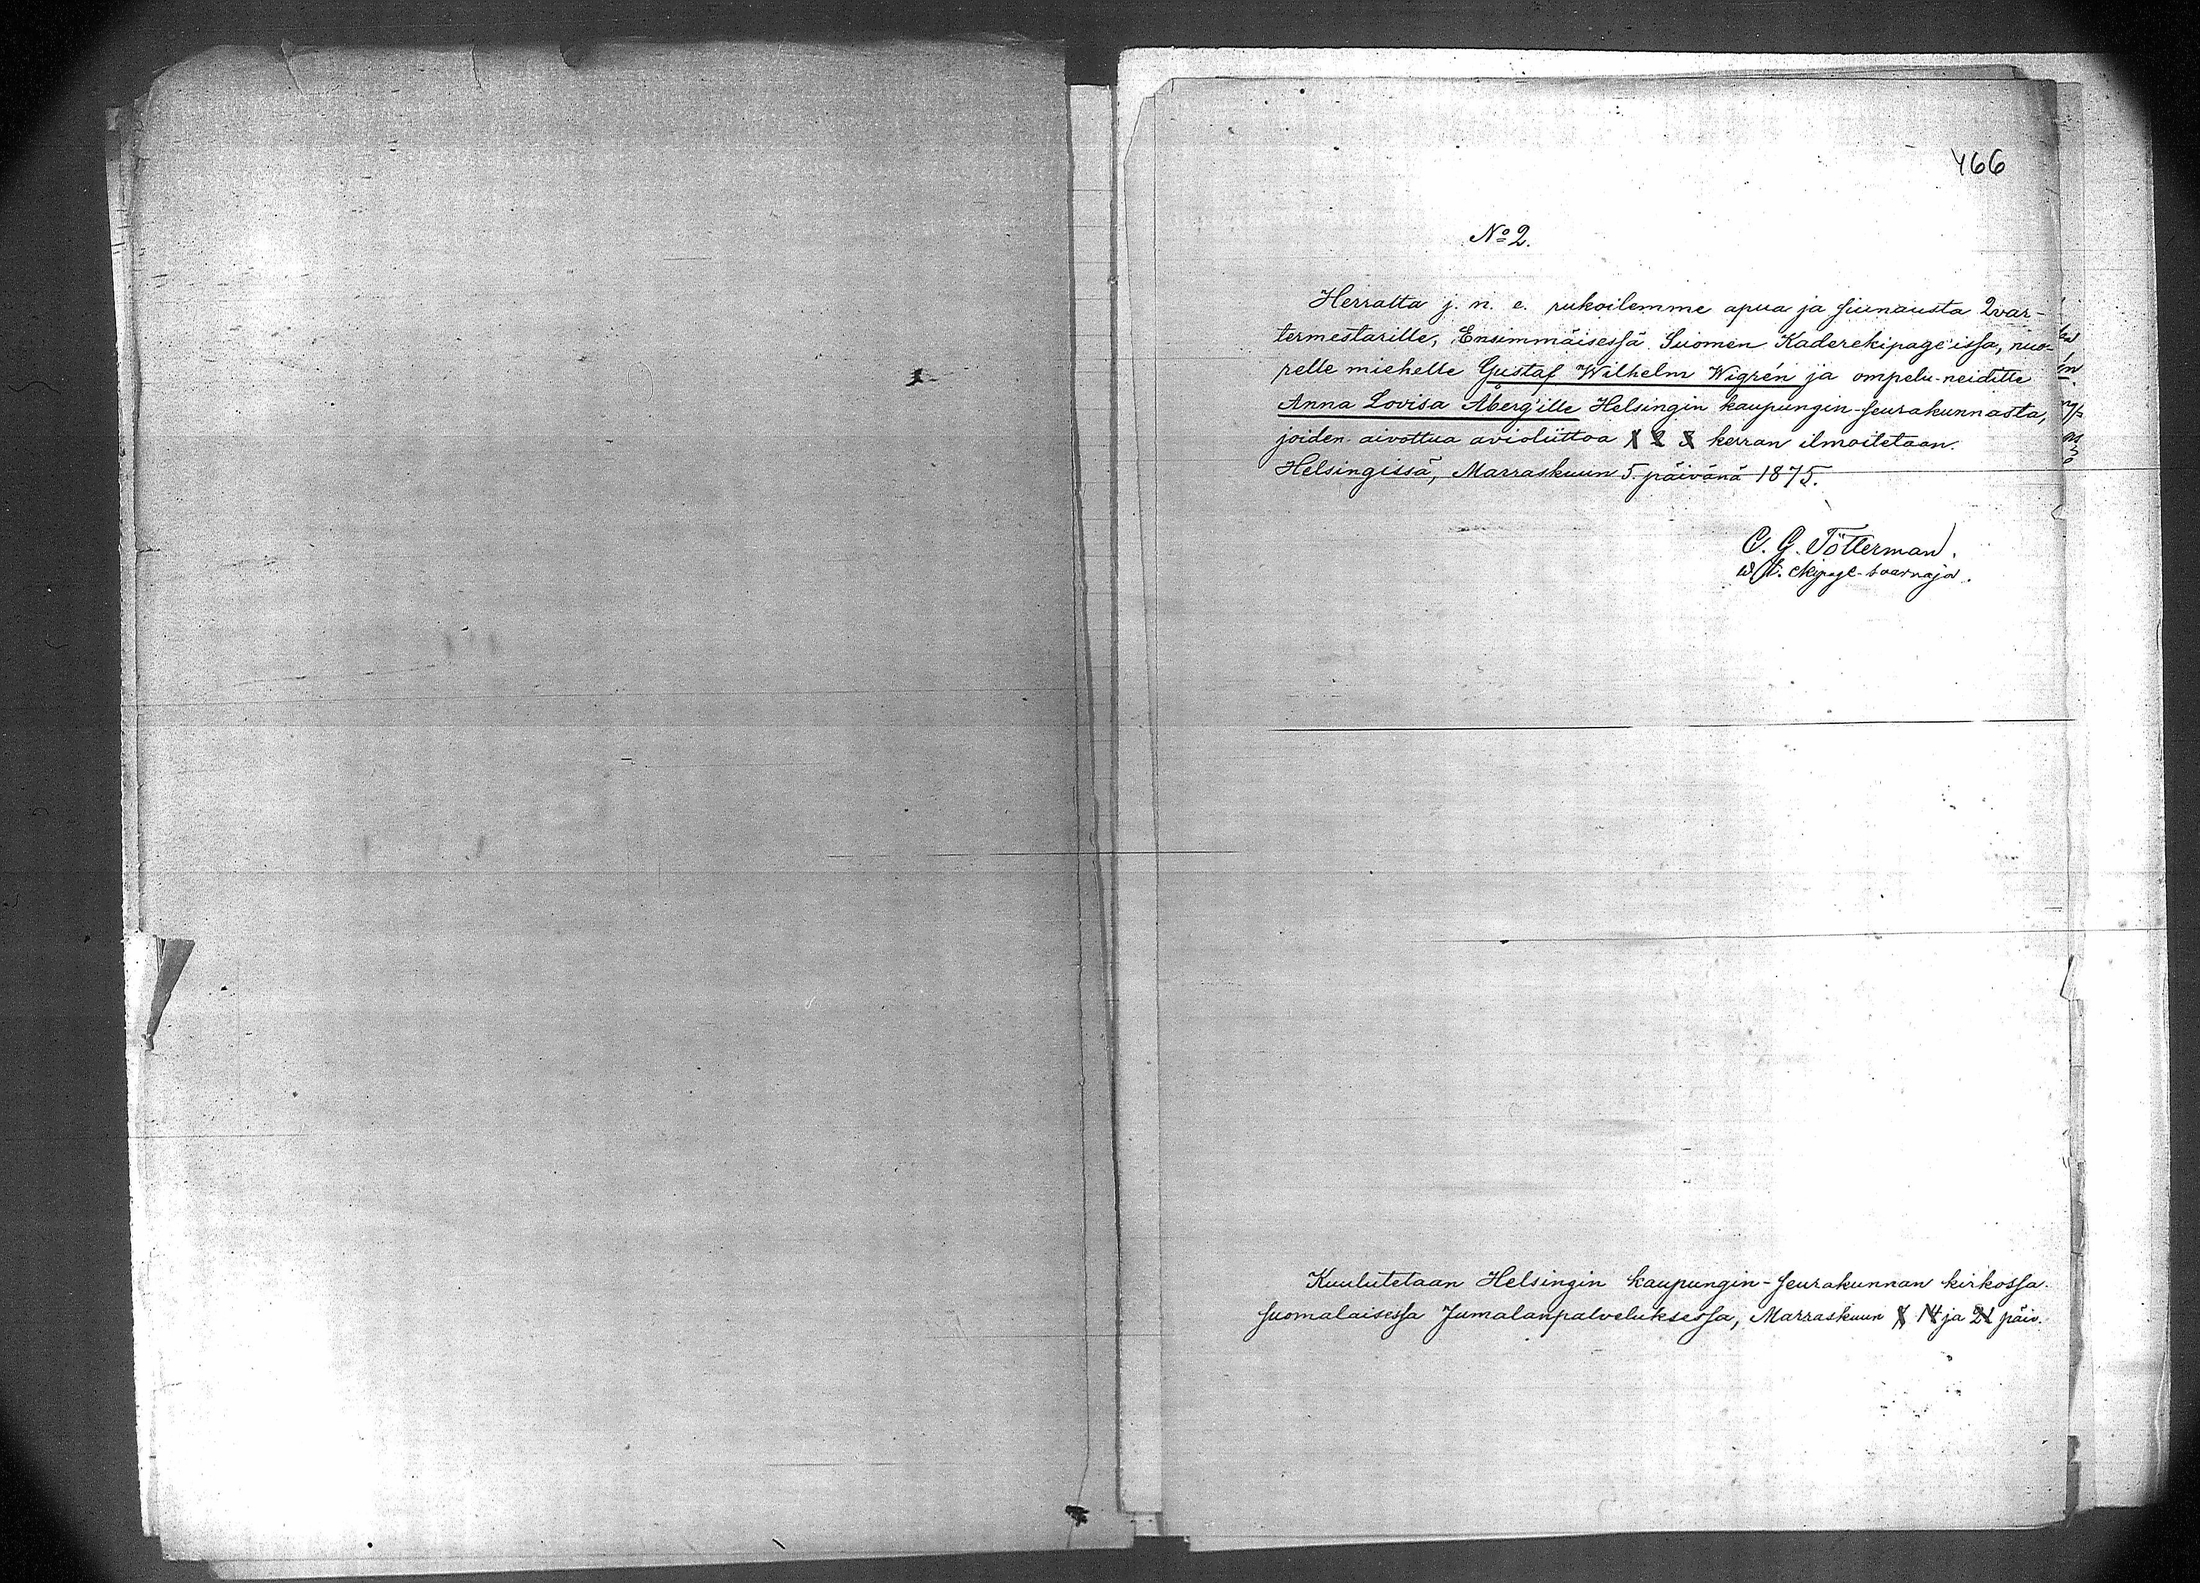 466
No 2.
Herralta j. n. e. rukoilemme apua ja siunausta Qvar-
termestarille, Ensimmäisessä Suomen Kaderekipage'issa, nuo-
relle miehelle Gustaf Wilhelm Wigrén ja ompelu-neidille
Anna Lovisa Åberg'ille Helsingin kaupungin-seurakunnasta,
joiden aivottua avioliittoa 1 2 3 kerran ilmoitetaan.
Helsingissä, Marraskuun 5. päivänä 1875.
C. G. Tötterman.
v. t. ekipage-saarnaja.
Kuulutetaan Helsingin kaupungin-seurakunnan kirkossa
suomalaisessa Jumalanpalveluksessa, Marraskuun 7 14 ja 21 päiv.